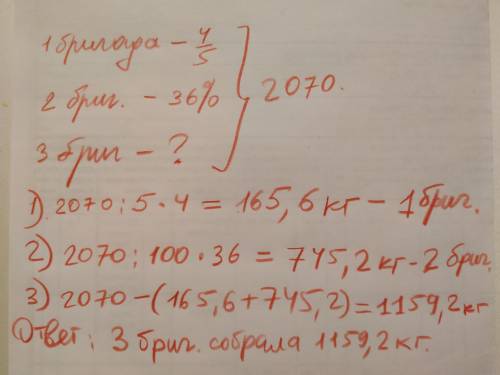 1 бригада - 4/5
2 бриг. - 36% } 2070.
3 бриг - ?
1) 2070 : 5 · 4 = 165,6 кг - 1 бриг.
2) 2070 : 100 · 36 = 745,2 кг - 2 бриг.
3) 2070 - (165,6 + 745,2) = 1159,2 кг
Ответ: 3 бриг. собрала 1159,2 кг.